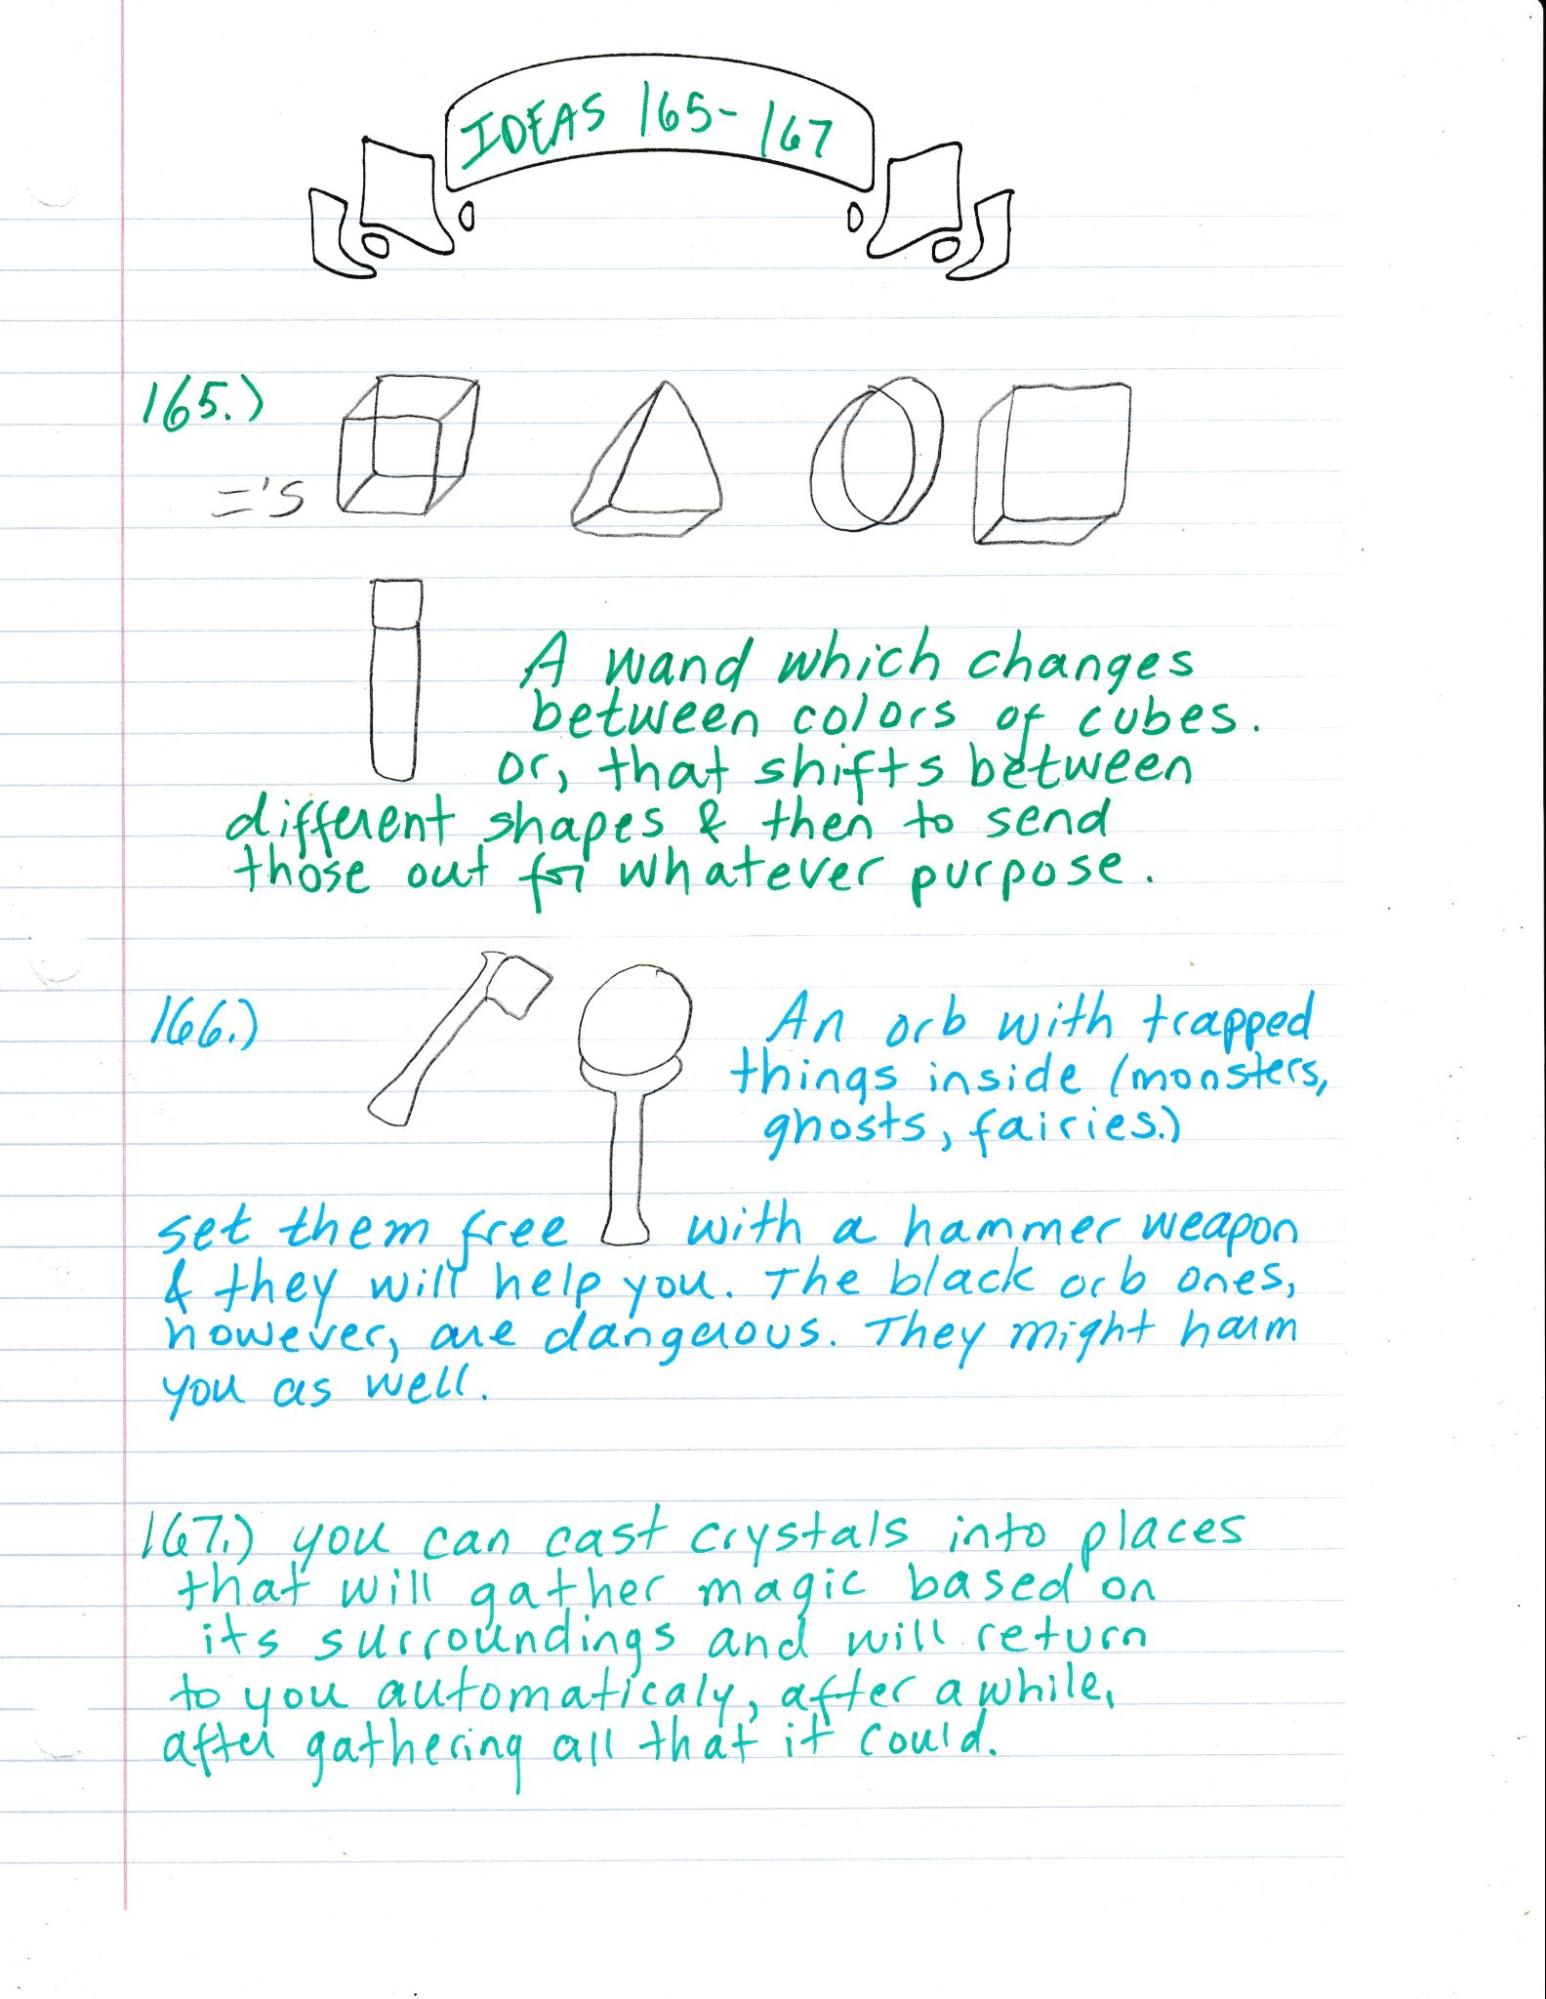 IDEAS 165-167
165.)
='s
A wand which changes
between colors of cubes.
or, that shifts between
different shapes & then to send
those out for whatever purpose.
166.)
An orb with trapped
things inside (monsters,
ghosts, fairies.)
set them free with a hammer weapon
& they will help you. The black orb ones,
however, are dangerous. They might harm
you as well.
167.) you can cast crystals into places
that will gather magic based on
its surroundings and will return
to you automaticaly, after awhile,
after gathering all that it could.